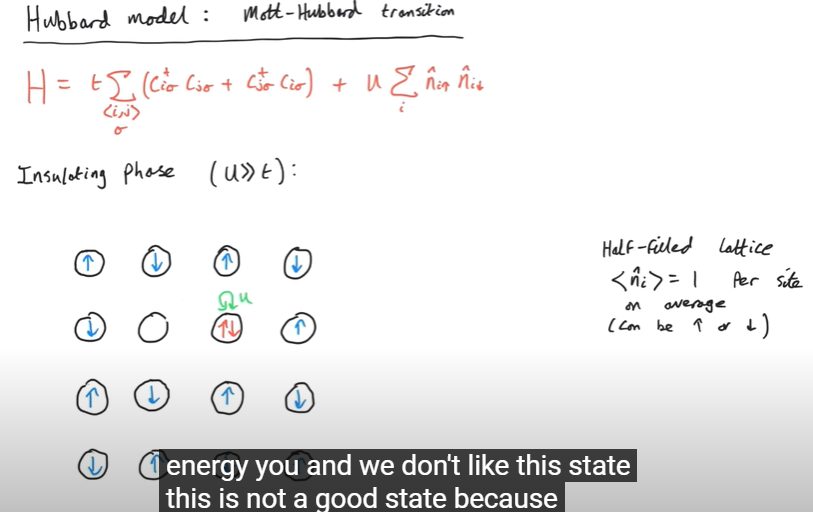 Hubbard model : Mott-Hubbard transition
H = t Σ (c†iσ cjσ + c†jσ ciσ) + u Σ n̂i↑ n̂i↓
<i,j> i
σ
Insulating phase (U≫t):
↑ ↓ ↑ ↓
u
↓ ↑↓ ↑
↑ ↓ ↑ ↓
↓ ↑
Half-filled lattice
<n̂i> = 1 per site
on average
(can be ↑ or ↓)
energy you and we don't like this state
this is not a good state because